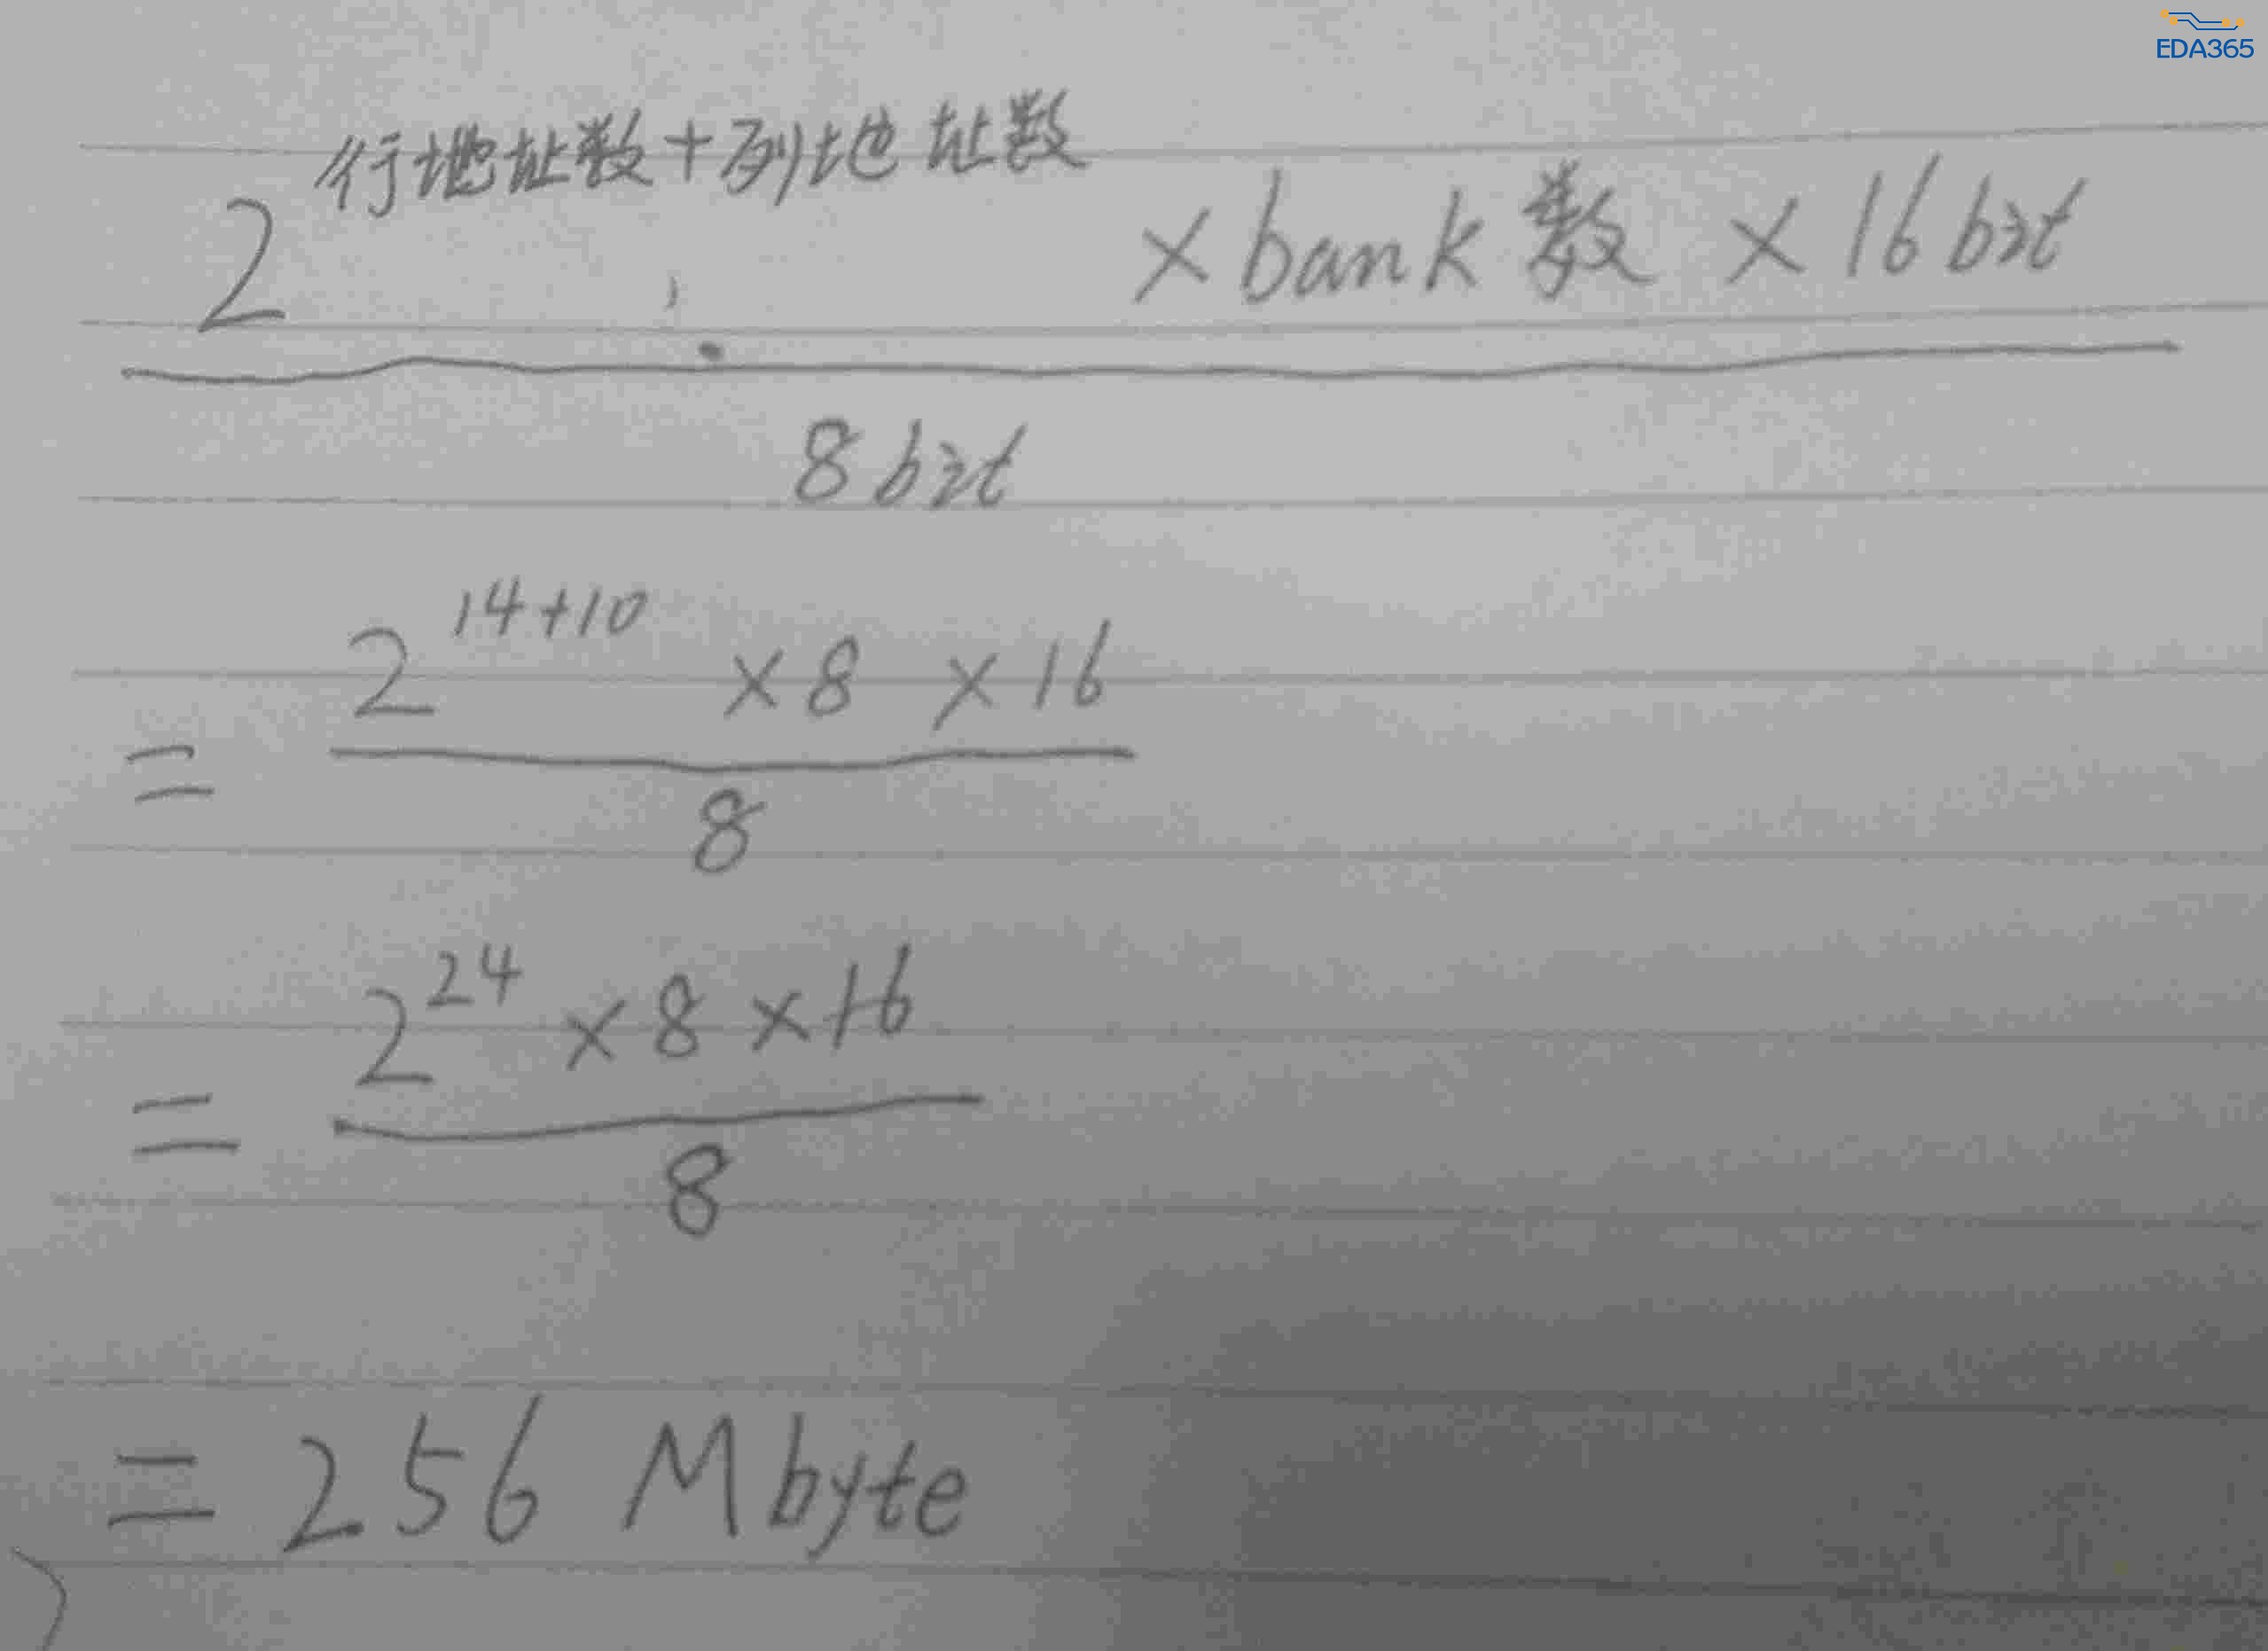 EDA365
2^行地址数+列地址数 × bank数 × 16bit
8bit
= 2^14+10 × 8 × 16
8
= 2^24 × 8 × 16
8
= 256 Mbyte